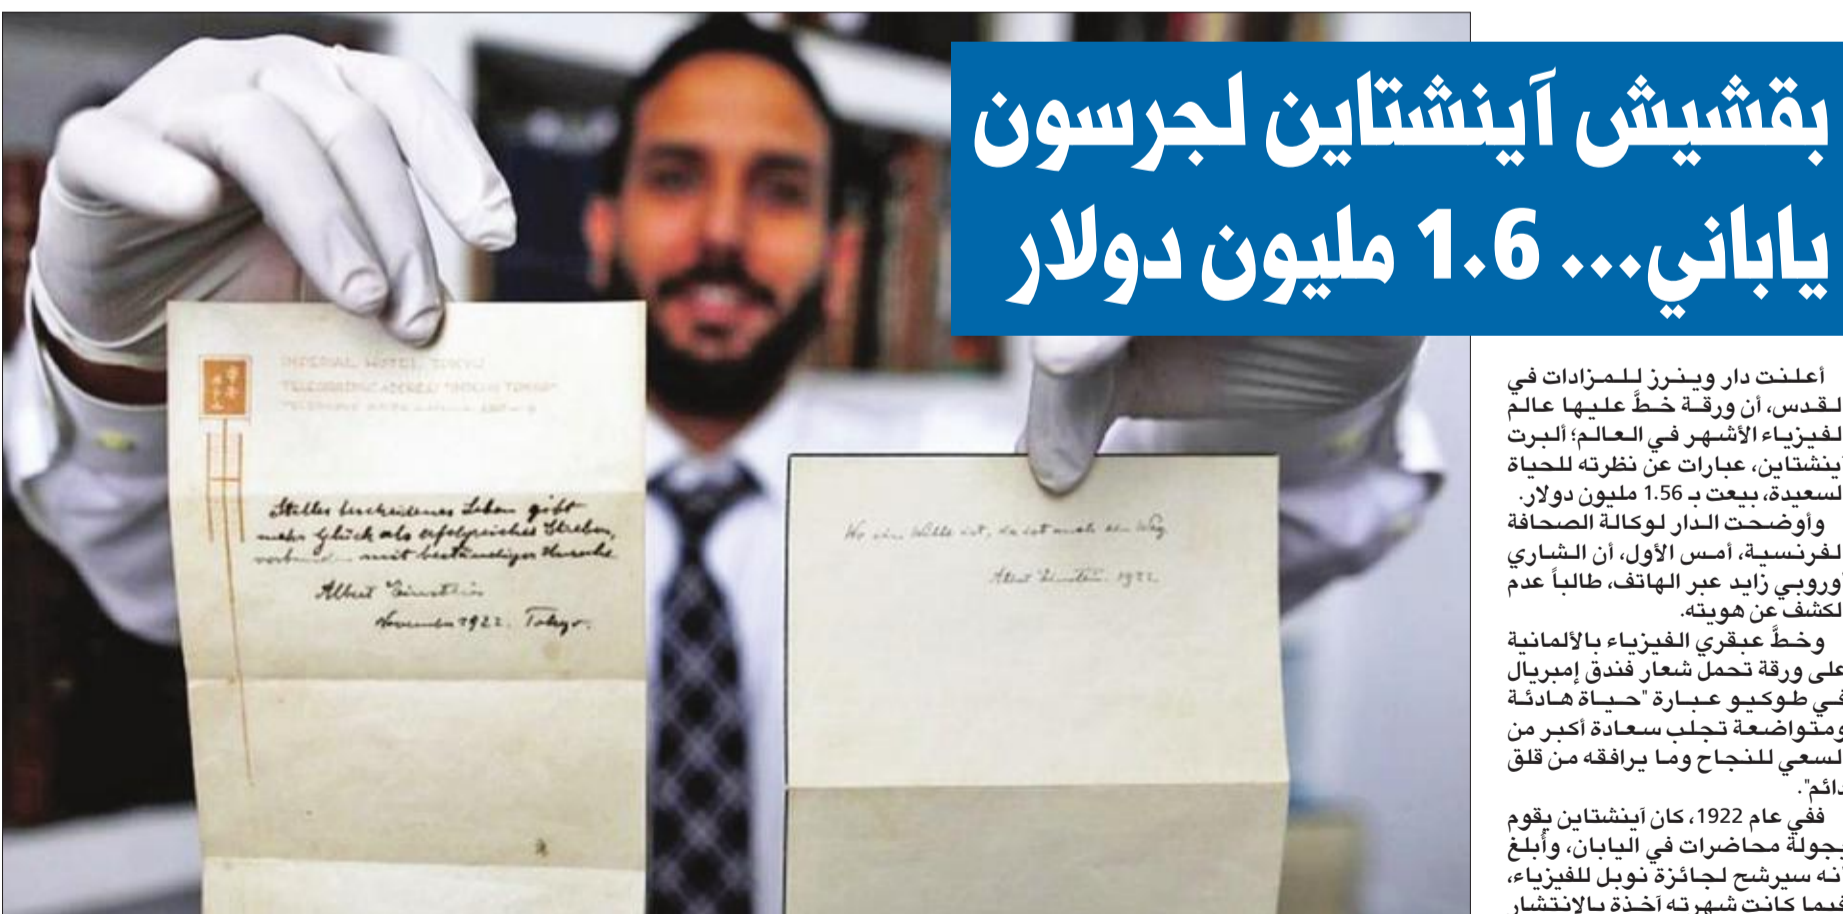 بقشيش آينشتاين لجرسون
ياباني... 1.6 مليون دولار
أعلنت دار وينرز للمزادات في
لقدس، أن ورقة خطَّ عليها عالم
لفيزياء الأشهر في العالم؛ ألبرت
ينشتاين، عبارات عن نظرته للحياة
لسعيدة، بيعت بـ 1.56 مليون دولار.
وأوضحت الدار لوكالة الصحافة
لفرنسية، أمس الأول، أن الشاري
وروبي زايد عبر الهاتف، طالباً عدم
لكشف عن هويته.
وخطَّ عبقري الفيزياء بالألمانية
على ورقة تحمل شعار فندق إمبريال
في طوكيو عبارة "حياة هادئة
ومتواضعة تجلب سعادة أكبر من
لسعي للنجاح وما يرافقه من قلق
دائم".
ففي عام 1922، كان آينشتاين يقوم
بجولة محاضرات في اليابان، وأُبلغ
نه سيرشح لجائزة نوبل للفيزياء،
فيما كانت شهرته آخذة بالانتشار
IMPERIAL HOTEL, TOKYO
Stilles bescheidenes Leben gibt
mehr Glück als erfolgreiches Streben,
mit beständiger Unruhe.
Albert Einstein
November 1922. Tokyo.
Wo ein Wille ist, da ist auch ein Weg.
Albert Einstein. 1922.